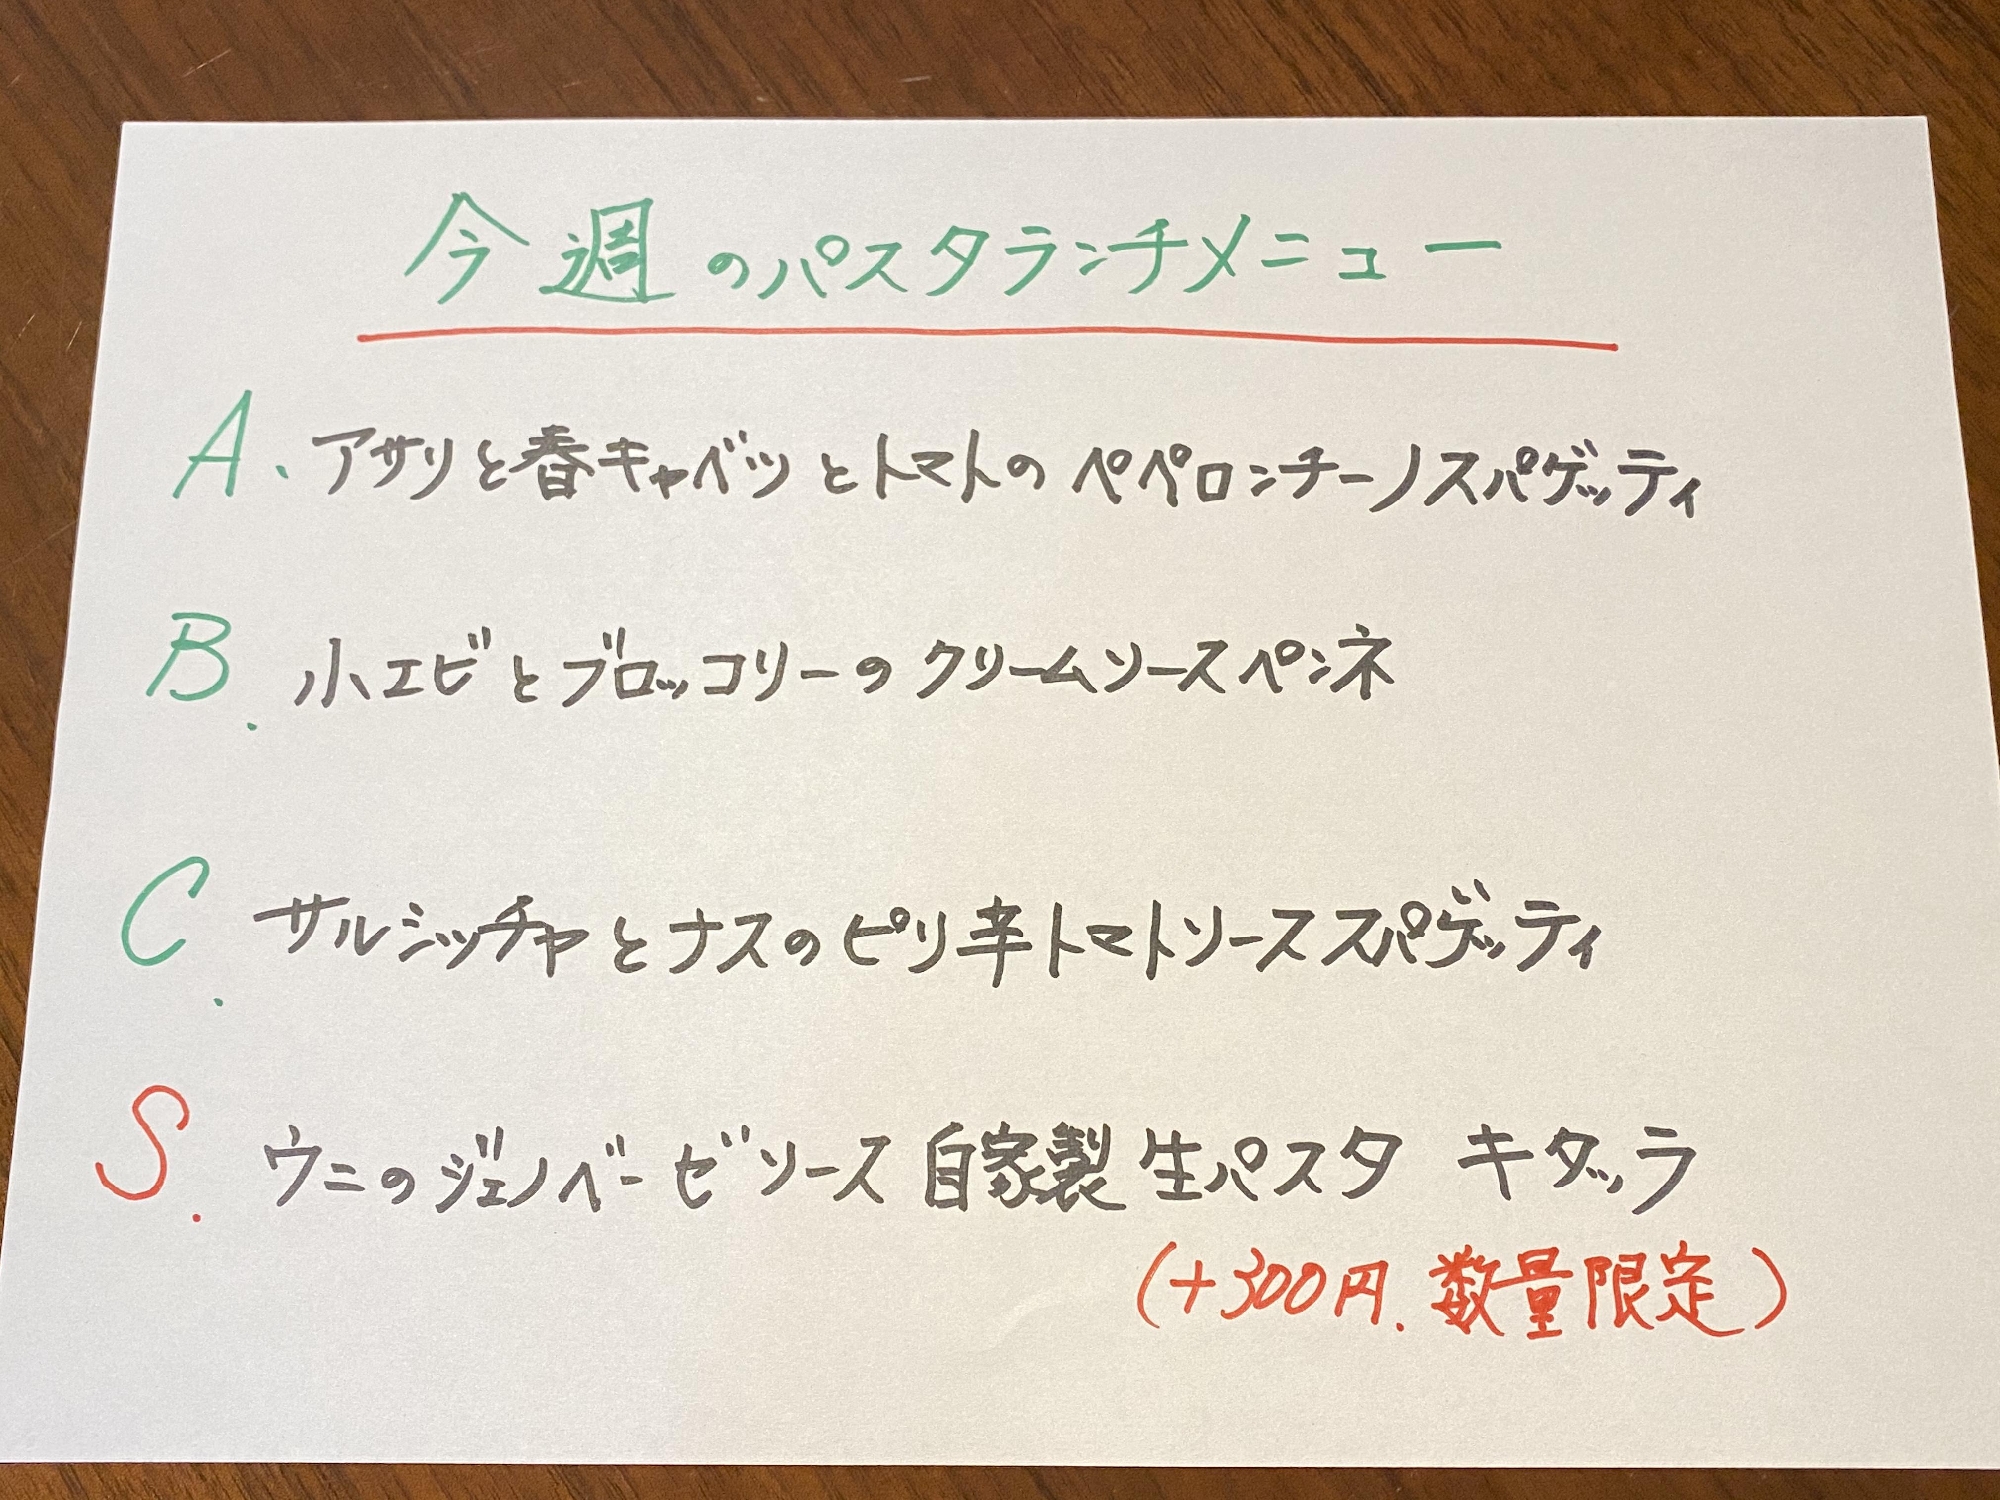 今週のパスタランチメニュー
A、アサリと春キャベツとトマトのペペロンチーノスパゲッティ
B. 小エビとブロッコリーのクリームソースペンネ
C. サルシッチャとナスのピリ辛トマトソーススパゲッティ
S. ウニのジェノベーゼソース自家製生パスタ キタッラ
(+300円.数量限定)